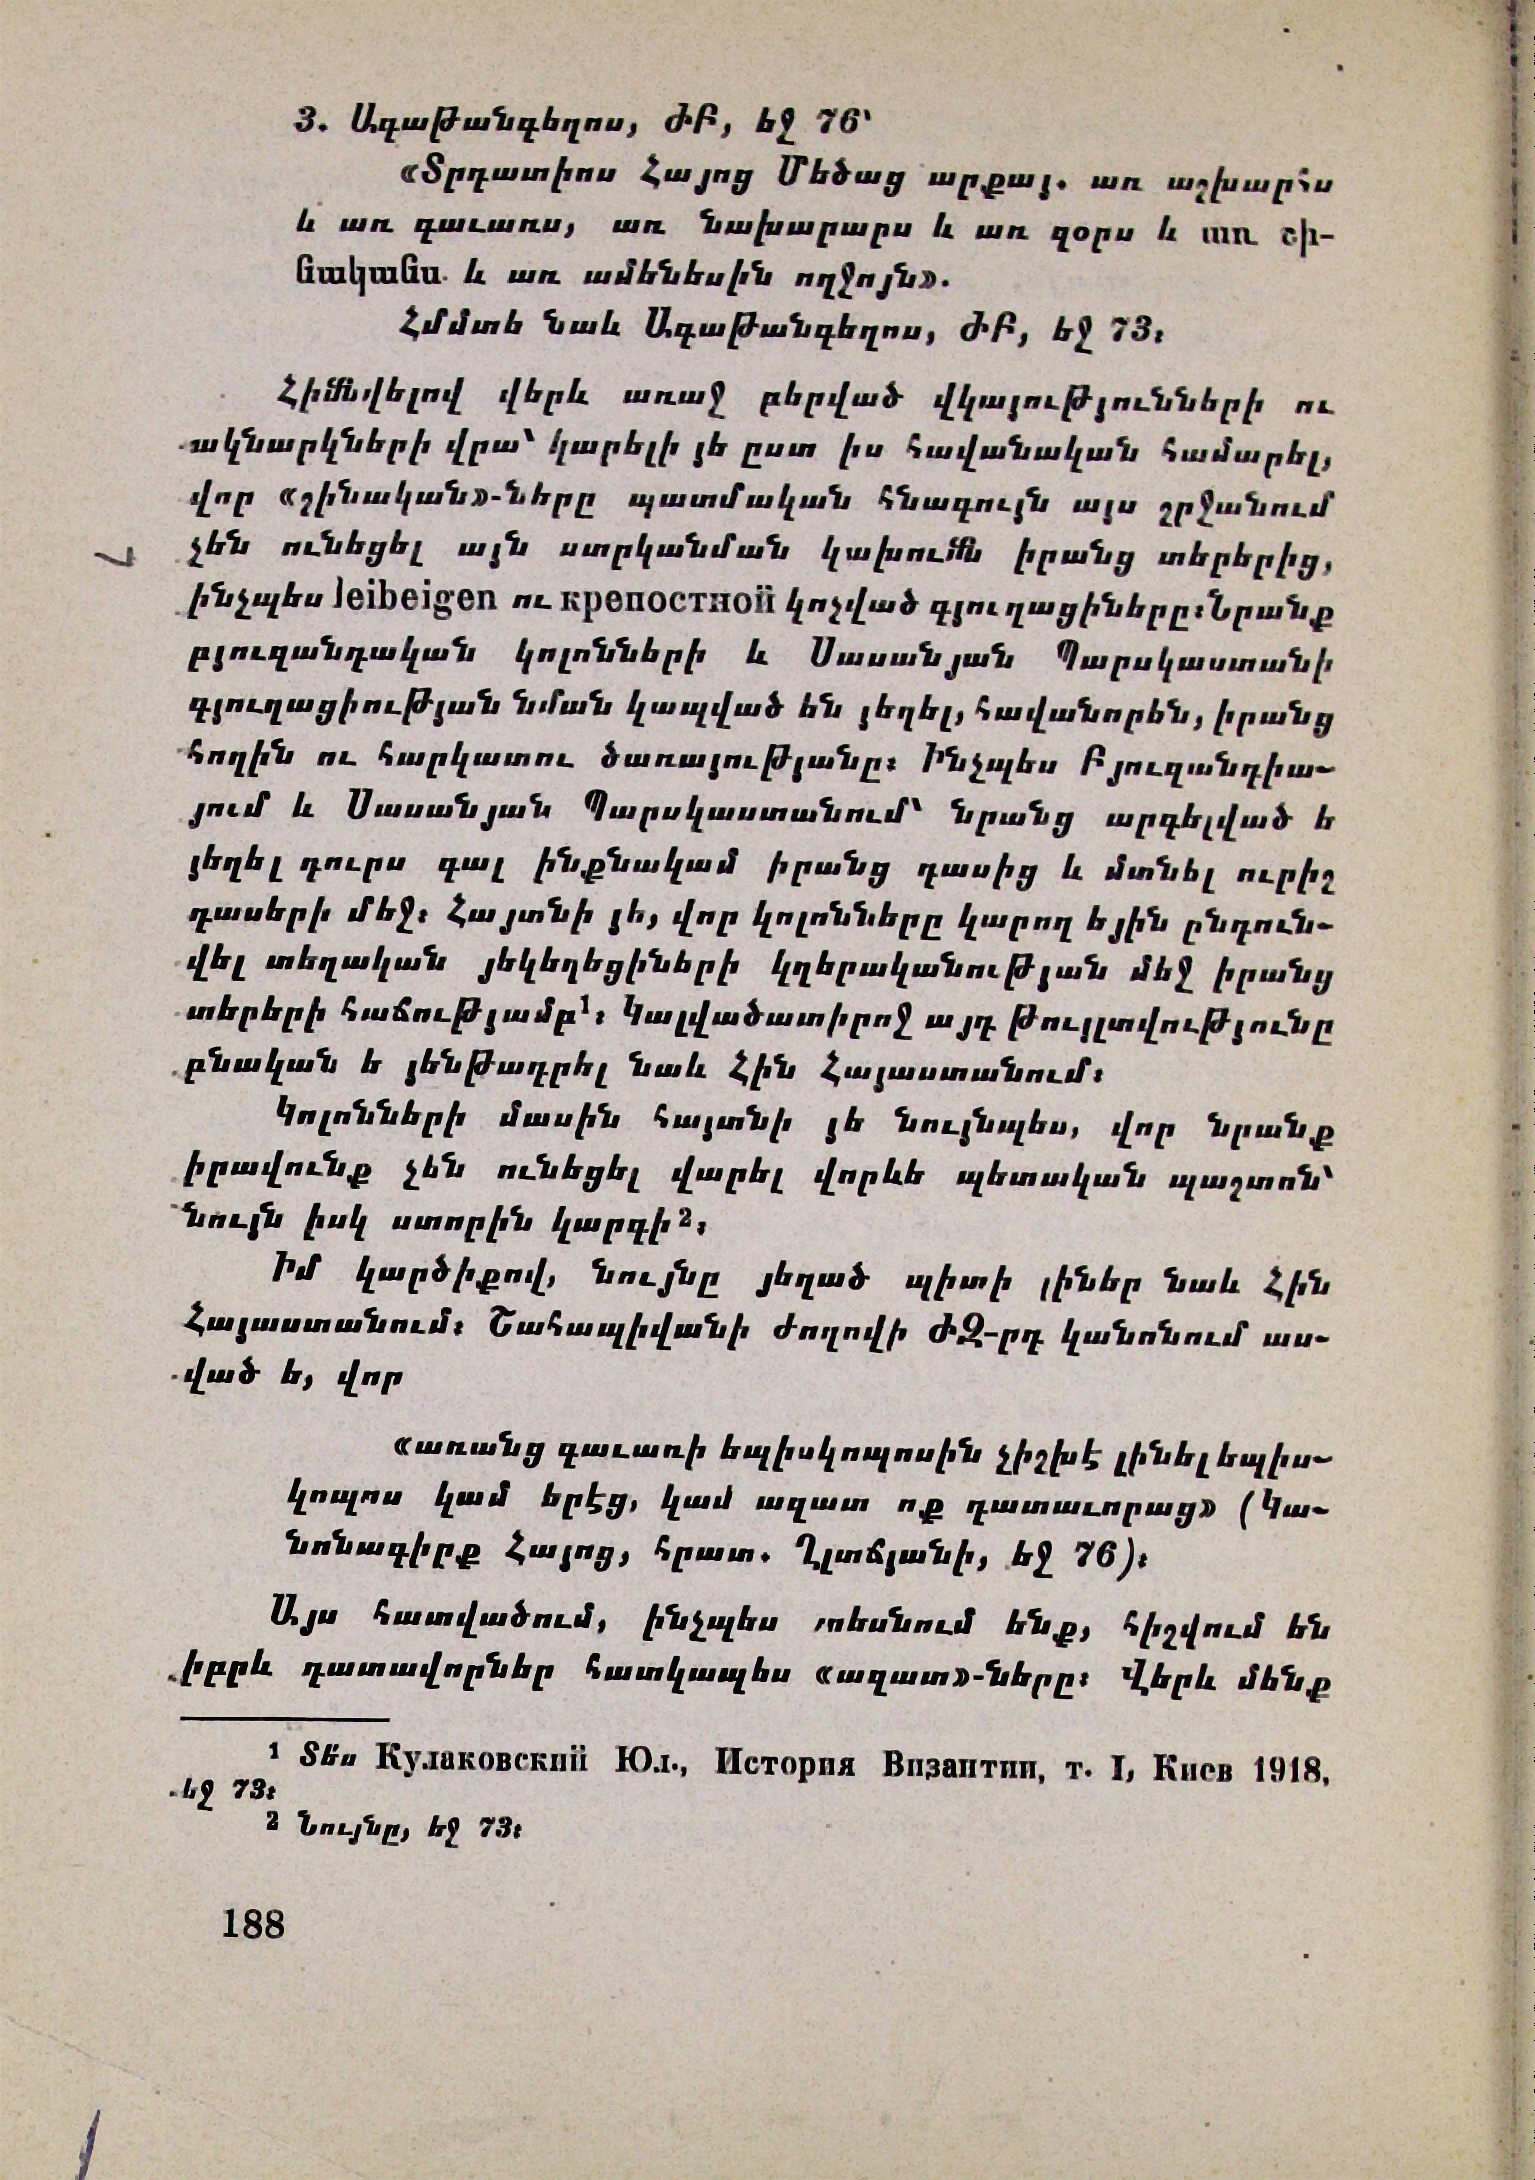 3. Ագաթանգեղոս, ԺԲ, եջ 76՝
«Տրդատիոս Հայոց Մեծաց արքայ. առ աշխարհս
և առ գաւառս, առ նախարարս և առ զօրս և առ շի-
նականս և առ ամենեսին ողջոյն».
Հմմտե նաև Ագաթանգեղոս, ԺԲ, եջ 73։
Հիմնվելով վերև առաջ բերված վկայությունների ու
ակնարկների վրա՝ կարելի յե ըստ իս հավանական համարել,
վոր «շինական»-ները պատմական հնագույն այս շրջանում
չեն ունեցել այն ստրկանման կախումն իրանց տերերից,
ինչպես leibeigen ու крепостной կոչված գյուղացիները։ Նրանք
բյուզանդական կոլոնների և Սասանյան Պարսկաստանի
գյուղացիության նման կապված են յեղել, հավանորեն, իրանց
հողին ու հարկատու ծառայությանը։ Ինչպես Բյուզանդիա-
յում և Սասանյան Պարսկաստանում՝ նրանց արգելված ե
յեղել դուրս գալ ինքնակամ իրանց դասից և մտնել ուրիշ
դասերի մեջ։ Հայտնի յե, վոր կոլոնները կարող եյին ընդուն-
վել տեղական յեկեղեցիների կղերականության մեջ իրանց
տերերի հաճությամբ¹։ Կալվածատիրոջ այդ թույլտվությունը
բնական ե յենթադրել նաև Հին Հայաստանում։
Կոլոնների մասին հայտնի յե նույնպես, վոր նրանք
իրավունք չեն ունեցել վարել վորևե պետական պաշտոն՝
նույն իսկ ստորին կարգի²։
Իմ կարծիքով, նույնը յեղած պիտի լիներ նաև Հին
Հայաստանում։ Շահապիվանի ժողովի ԺԶ-րդ կանոնում աս-
ված ե, վոր
«առանց գաւառի եպիսկոպոսին չիշխէ լինել եպիս-
կոպոս կամ երէց, կամ ազատ ոք դատաւորաց» (Կա-
նոնագիրք Հայոց, հրատ. Ղլտճյանի, եջ 76)։
Այս հատվածում, ինչպես տեսնում ենք, հիշվում են
իբրև դատավորներ հատկապես «ազատ»-ները։ Վերև մենք
¹ Տես Кулаковский Юл., История Византии, т. I, Киев 1918,
եջ 73։
² Նույնը, եջ 73։
188